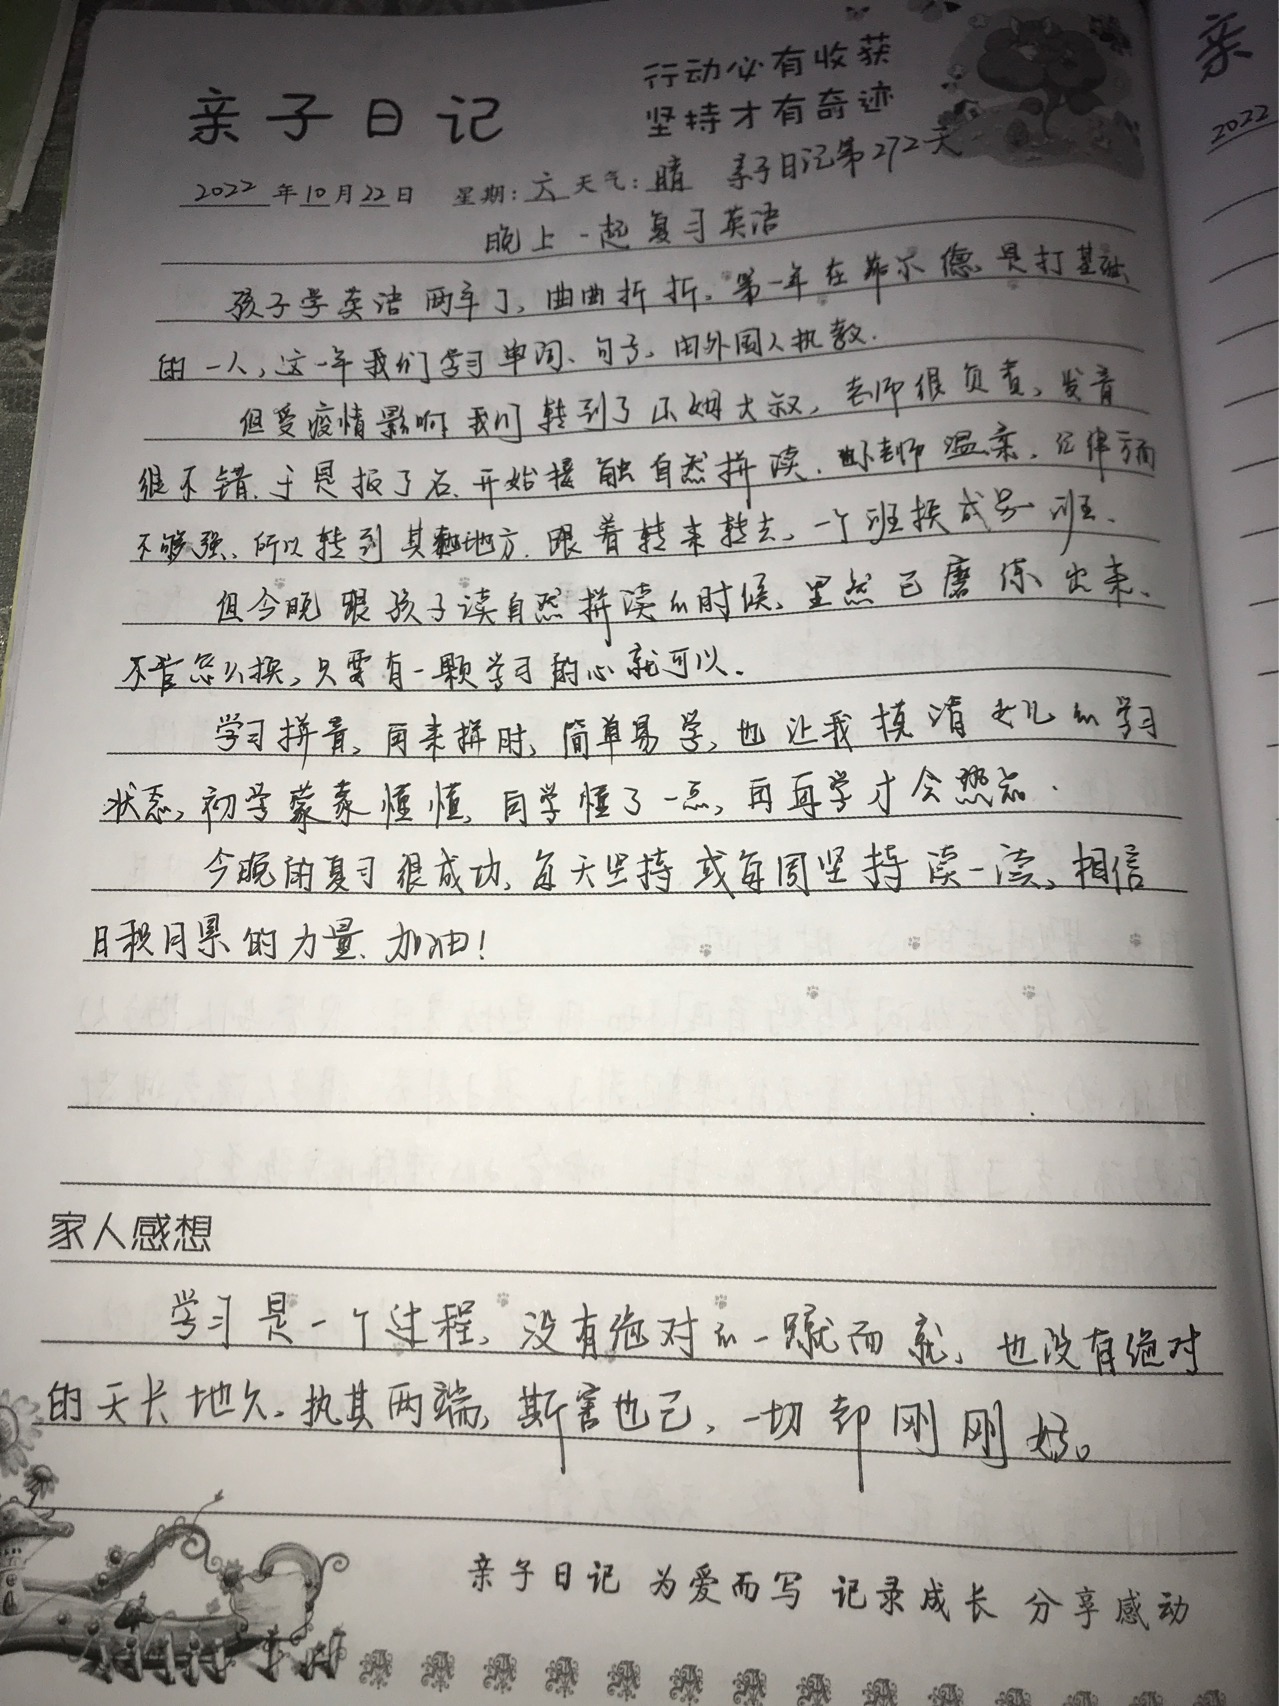 行动必有收获
亲子日记
坚持才有奇迹
亲
2022年10月22日 星期:六 天气:晴 亲子日记第272天
2022
晚上一起复习英语
孩子学英语两年了,曲曲折折。第一年在希尔德是打基础
的一人,这一年我们学习单词、句子,由外国人执教.
但受疫情影响我们转到了山姆大叔,老师很负责,发音
很不错,于是报了名,开始接触自然拼读,老师温柔,纪律方面
不够强,所以转到其他地方,跟着转来转去,一个班换成另一班、
但今晚跟孩子读自然拼读的时候,显然已磨练出来、
不管怎么换,只要有一颗学习的心就可以.
学习拼音,再来拼时,简单易学,也让我摸清女儿的学习
状态,初学蒙蒙懂懂,再学懂了一点,再再学才会熟知.
今晚的复习很成功,每天坚持或每周坚持读一读,相信
日积月累的力量,加油!
家人感想
学习是一个过程,没有绝对的一蹴而就,也没有绝对
的天长地久,执其两端,斯害也已,一切都刚刚好。
亲子日记 为爱而写 记录成长 分享感动